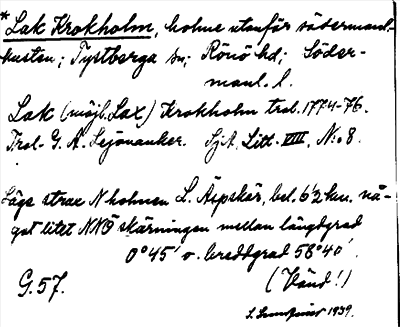 * Lak Krokholm, holme utanför södermanl.-
kusten; Tystberga sn; Rönö hd; Söder-
manl. l.
Lak (möjl. Lax) Krokholm trol. 1774-76.
Trol. G. A. Lejonanker. SjA. Litt. VIII. N:o 8.
Läge strax N holmen L. Äspskär, bel. 6½ km. nå-
got litet NNÖ skärningen mellan längdgrad
0°45' o. breddgrad 58°40'.
G. 57. (Vänd!)
1939.